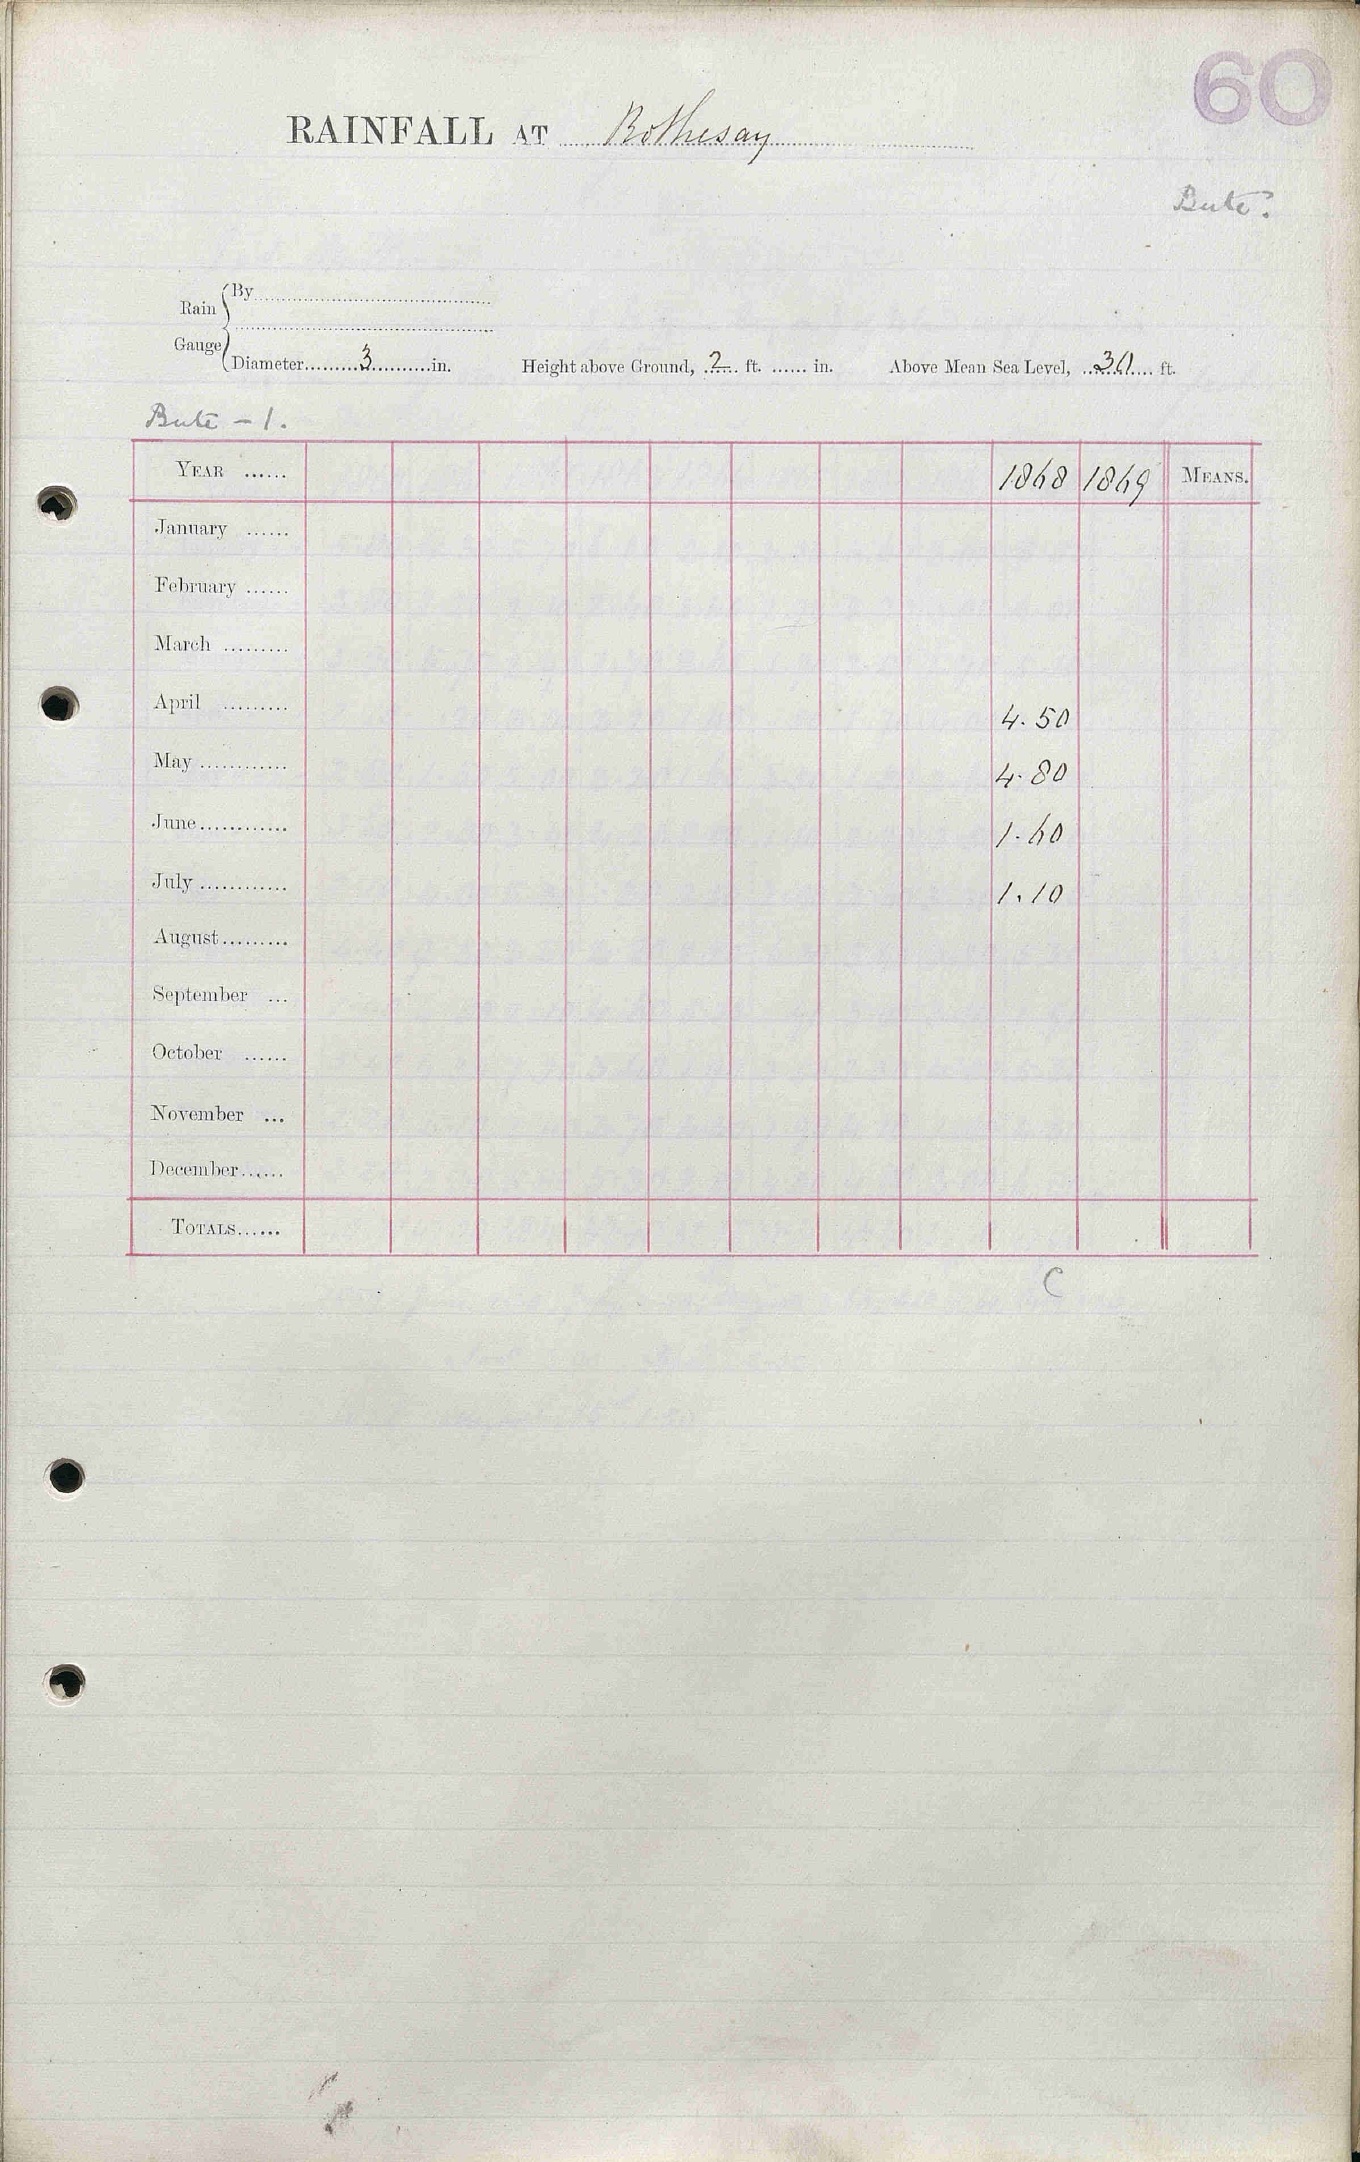 60
RAINFALL AT Rothesay
Bute.
Rain Gauge
By
Diameter 3 in. Height above Ground, 2 ft. in. Above Mean Sea Level, ft.
Bute - 1.
YEAR 1868 1869 MEANS.
January
February
March
April 4.50
May 4.80
June 1.60
July 1.10
August
September
October
November
December
TOTALS
C